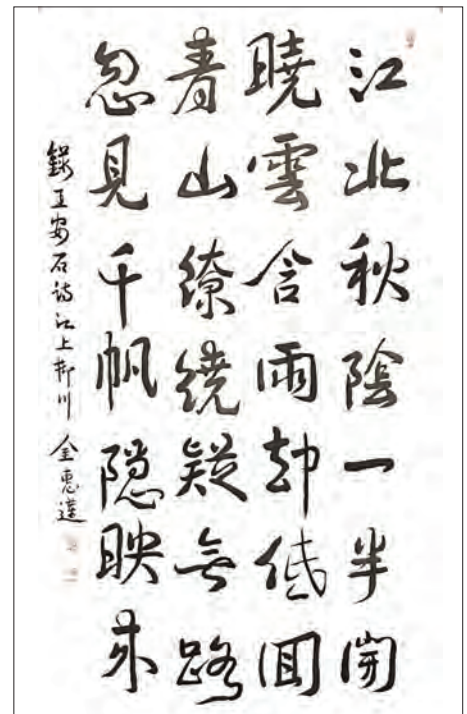 江北秋陰一半開
曉雲含雨却低回
青山繚繞疑無路
忽見千帆隱映來
錄王安石诗江上川 金惠